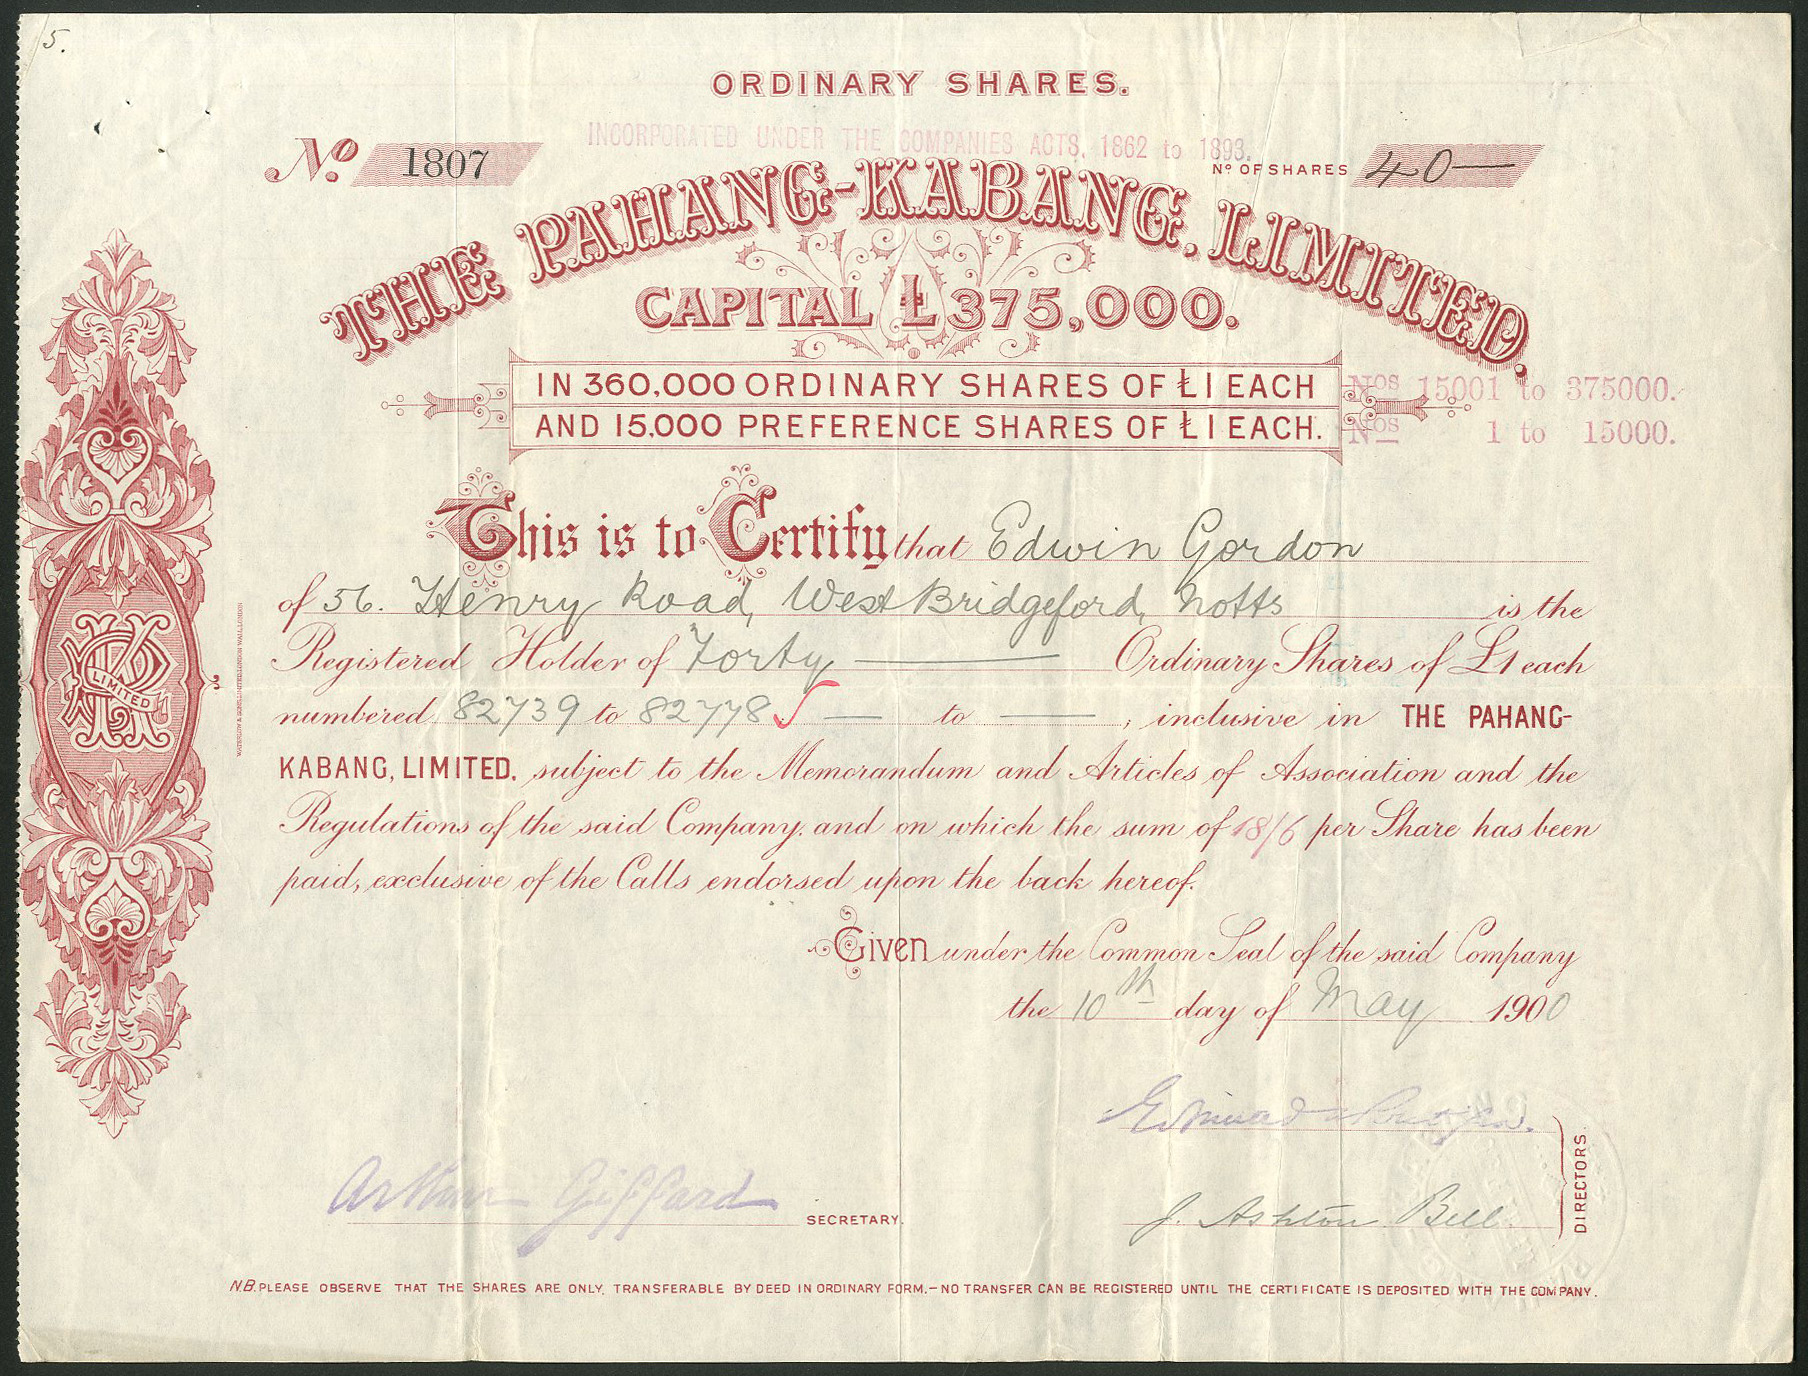 5.
ORDINARY SHARES.
INCORPORATED UNDER THE COMPANIES ACTS, 1862 to 1893.
No. 1807
No OF SHARES 40—
THE PAHANG-KABANG, LIMITED.
CAPITAL £375,000.
IN 360,000 ORDINARY SHARES OF £1 EACH
Nos 15001 to 375000.
AND 15,000 PREFERENCE SHARES OF £1 EACH.
Nos 1 to 15000.
This is to Certify that Edwin Gordon
of 56. Henry Road, West Bridgeford, Notts is the
Registered Holder of Forty Ordinary Shares of £1 each
numbered 82739 to 82778 — to — , inclusive in THE PAHANG-
KABANG, LIMITED, subject to the Memorandum and Articles of Association and the
Regulations of the said Company, and on which the sum of 18/6 per Share has been
paid, exclusive of the Calls endorsed upon the back hereof.
Given under the Common Seal of the said Company
the 10th day of May 1900
LIMITED
WATERLOW & SONS LIMITED LONDON WALL LONDON
Arthur Giffard SECRETARY.
J. Ashton Bell
DIRECTORS.
N.B. PLEASE OBSERVE THAT THE SHARES ARE ONLY, TRANSFERABLE BY DEED IN ORDINARY FORM.—NO TRANSFER CAN BE REGISTERED UNTIL THE CERTIFICATE IS DEPOSITED WITH THE COMPANY.